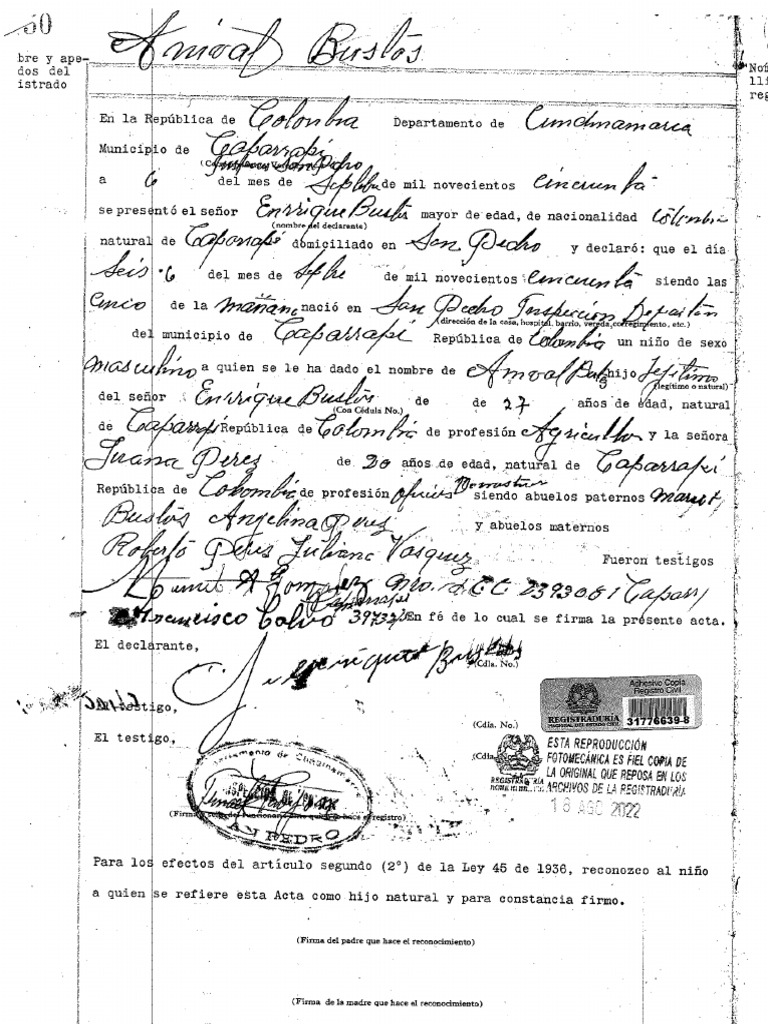 50
Anival Bustos
bre y ape-
dos del
istrado
En la República de Colombia Departamento de Cundinamarca
Municipio de Caparrapí
Inspeccion San Pedro
a 6 del mes de Septbre de mil novecientos cincuenta
se presentó el señor Enrrique Bustos mayor de edad, de nacionalidad Colombia
(nombre del declarante)
natural de Caparrapí domiciliado en San Pedro y declaró: que el día
Seis 6 del mes de Sepbre de mil novecientos cincuenta siendo las
Cinco de la mañana nació en San Pedro Inspeccion
(dirección de la casa, hospital, barrio, vereda, corregimiento, etc.)
del municipio de Caparrapí República de Colombia un niño de sexo
masculino a quien se le ha dado el nombre de Anival hijo Lejitimo
(legítimo o natural)
del señor Enrrique Bustos de de 27 años de edad, natural
(Con Cédula No.)
de Caparrapí República de Colombia de profesión Agricultor y la señora
Juana Perez de 20 años de edad, natural de Caparrapí
República de Colombia de profesión oficios siendo abuelos paternos
Bustos Angelina Perez y abuelos maternos
Roberto Peres Juliana Vasquez Fueron testigos
A Gonzalez Nro. CC 2393081 Caparrí
Caparrapí
Francisco Calvo 39732 En fé de lo cual se firma la presente acta.
El declarante,
(Cdla. No.)
testigo, (Cdla. No.)
El testigo,
Adhesivo Copia
Registro Civil
REGISTRADURIA
NACIONAL DEL ESTADO CIVIL
31776639-8
ESTA REPRODUCCIÓN
FOTOMECÁNICA ES FIEL COPIA DE
LA ORIGINAL QUE REPOSA EN LOS
ARCHIVOS DE LA REGISTRADURÍA
18 AGO 2022
Departamento de Cundinamarca
SAN PEDRO
Para los efectos del artículo segundo (2º) de la Ley 45 de 1936, reconozco al niño
a quien se refiere esta Acta como hijo natural y para constancia firmo.
(Firma del padre que hace el reconocimiento)
(Firma de la madre que hace el reconocimiento)